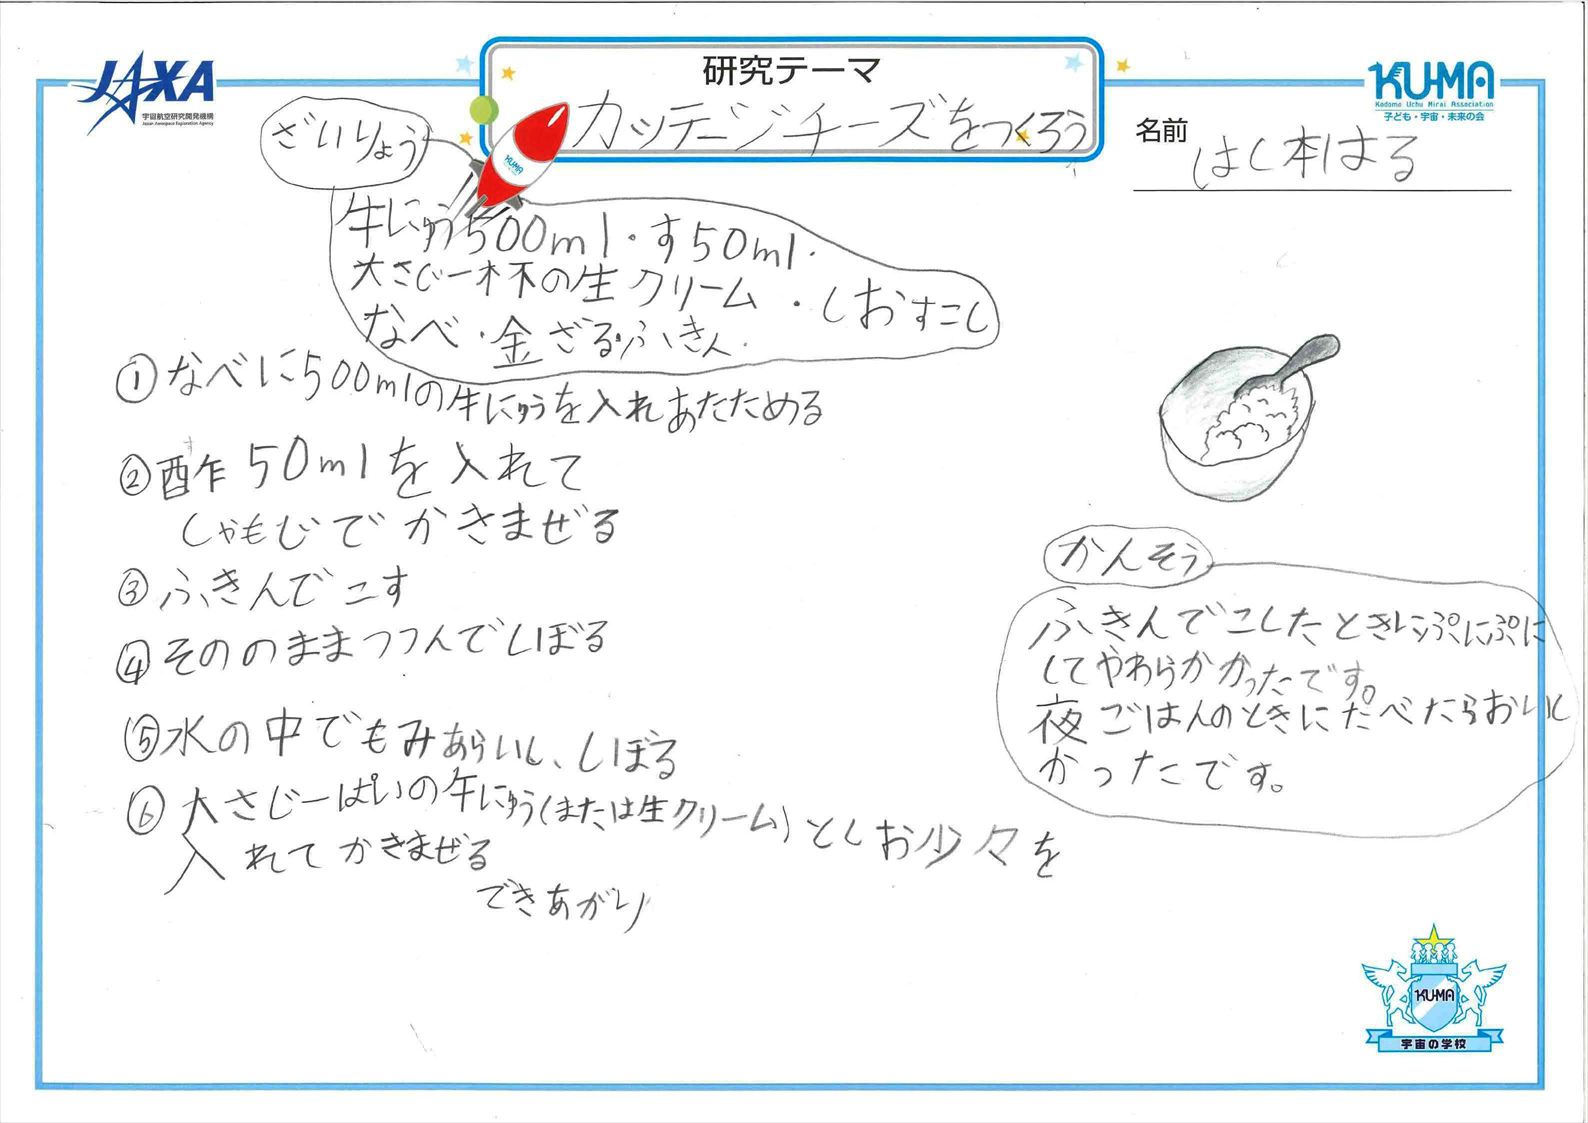 JAXA
宇宙航空研究開発機構
Japan Aerospace Exploration Agency
研究テーマ
カッテージチーズをつくろう
KUMA
Kodomo Uchu Mirai Association
子ども・宇宙・未来の会
名前
はし本はる
ざいりょう
KUMA
牛にゅう500ml・す50ml・
大さじ一杯の生クリーム・しおすこし
なべ・金ざる・ふきん・
①なべに500mlの牛にゅうを入れあたためる
す
②酢50mlを入れて
しゃもじでかきまぜる
③ふきんでこす
④そののままつつんでしぼる
⑤水の中でもみあらいし、しぼる
⑥大さじーぱいの牛にゅう(または生クリーム)としお少々を
入れてかきまぜる
できあがり
かんそう
ふきんでこしたときにぷにぷに
してやわらかかったです。
夜ごはんのときにたべたらおいし
かったです。
KUMA
宇宙の学校